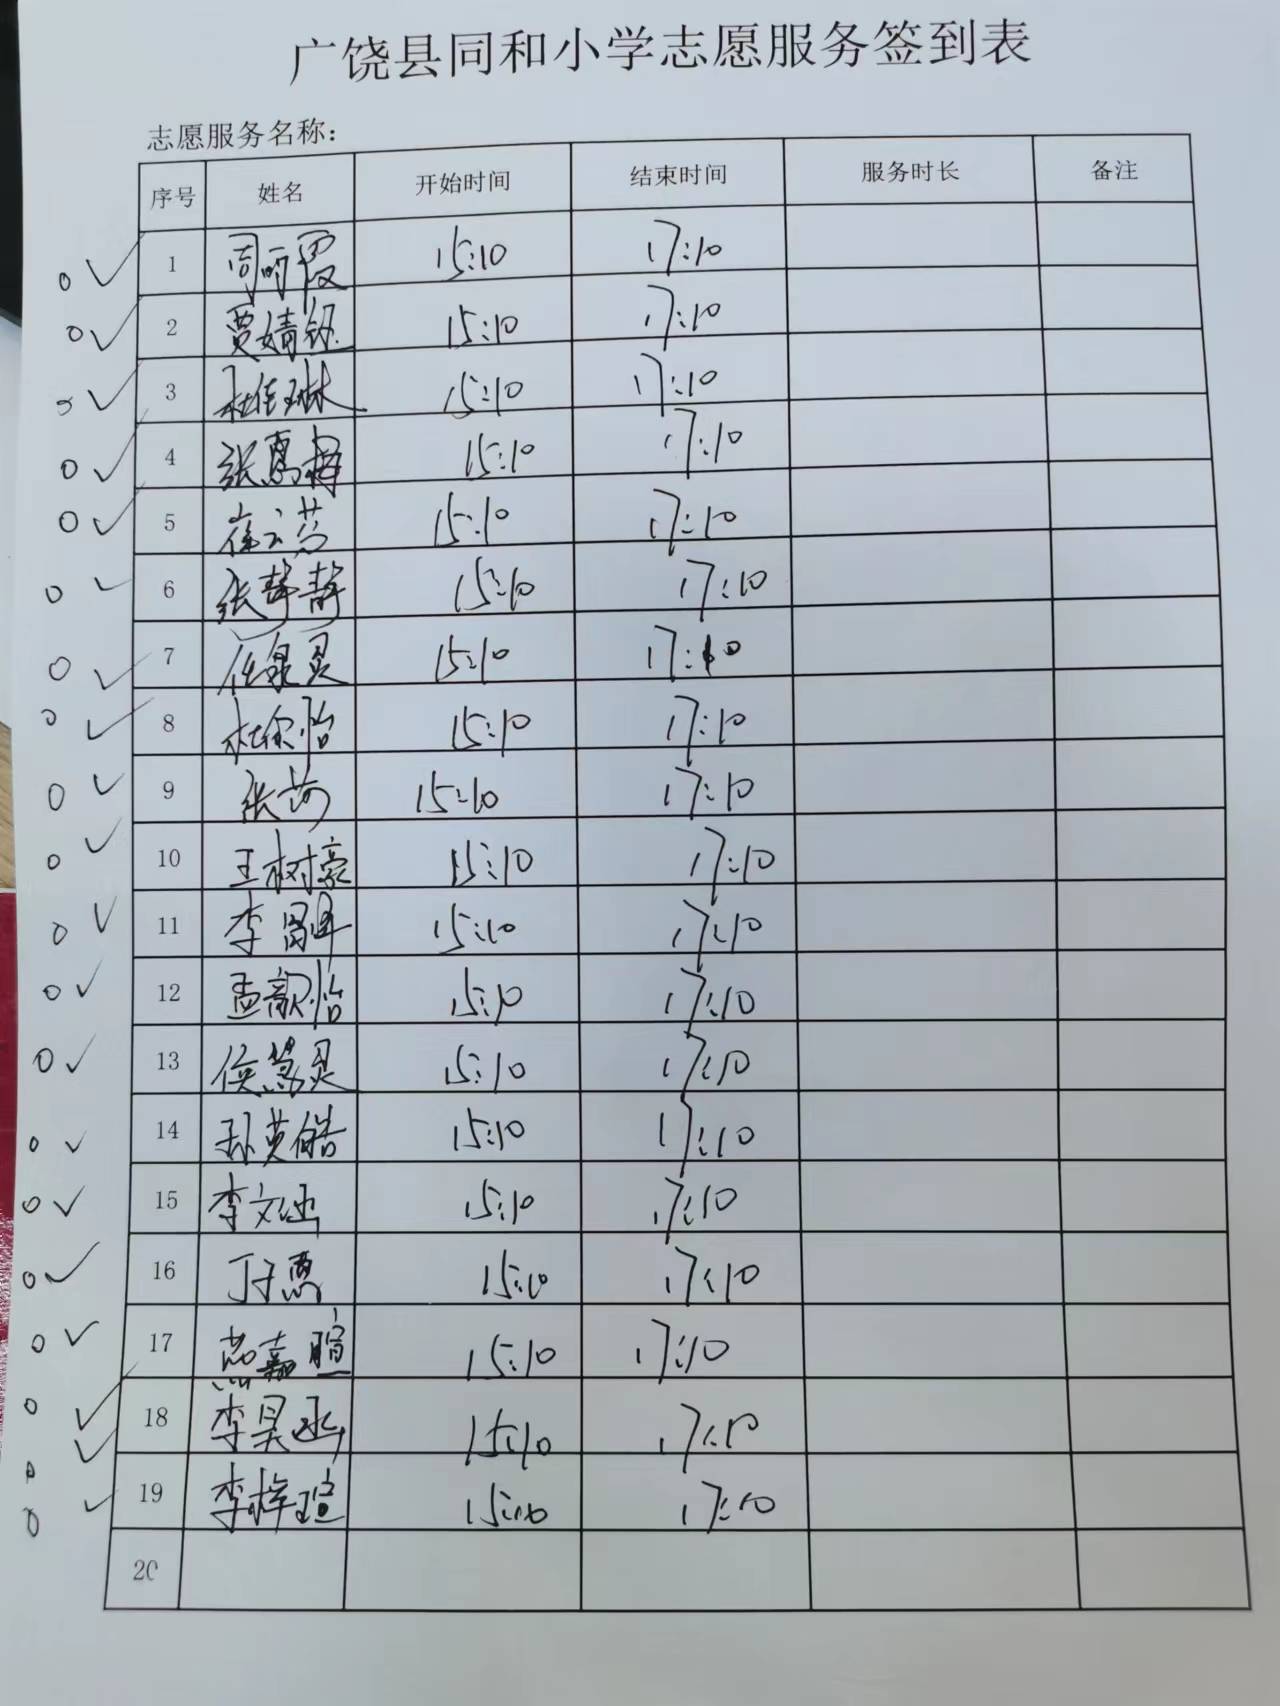 广饶县同和小学志愿服务签到表
志愿服务名称：
序号 姓名 开始时间 结束时间 服务时长 备注
1 15:10 17:10
2 贾婧钰 15:10 17:10
3 杜佳琳 15:10 17:10
4 张 15:10 17:10
5 崔 15:10 17:10
6 张静静 15:10 17:10
7 任 灵 15:10 17:10
8 杜 怡 15:10 17:10
9 张 15:10 17:10
10 王树豪 15:10 17:10
11 李 15:10 17:10
12 孟歆怡 15:10 17:10
13 侯 灵 15:10 17:10
14 孙英皓 15:10 17:10
15 李文涵 15:10 17:10
16 丁子惠 15:10 17:10
17 燕嘉暄 15:10 17:10
18 李昊函 15:10 17:10
19 李梓瑄 15:10 17:10
20